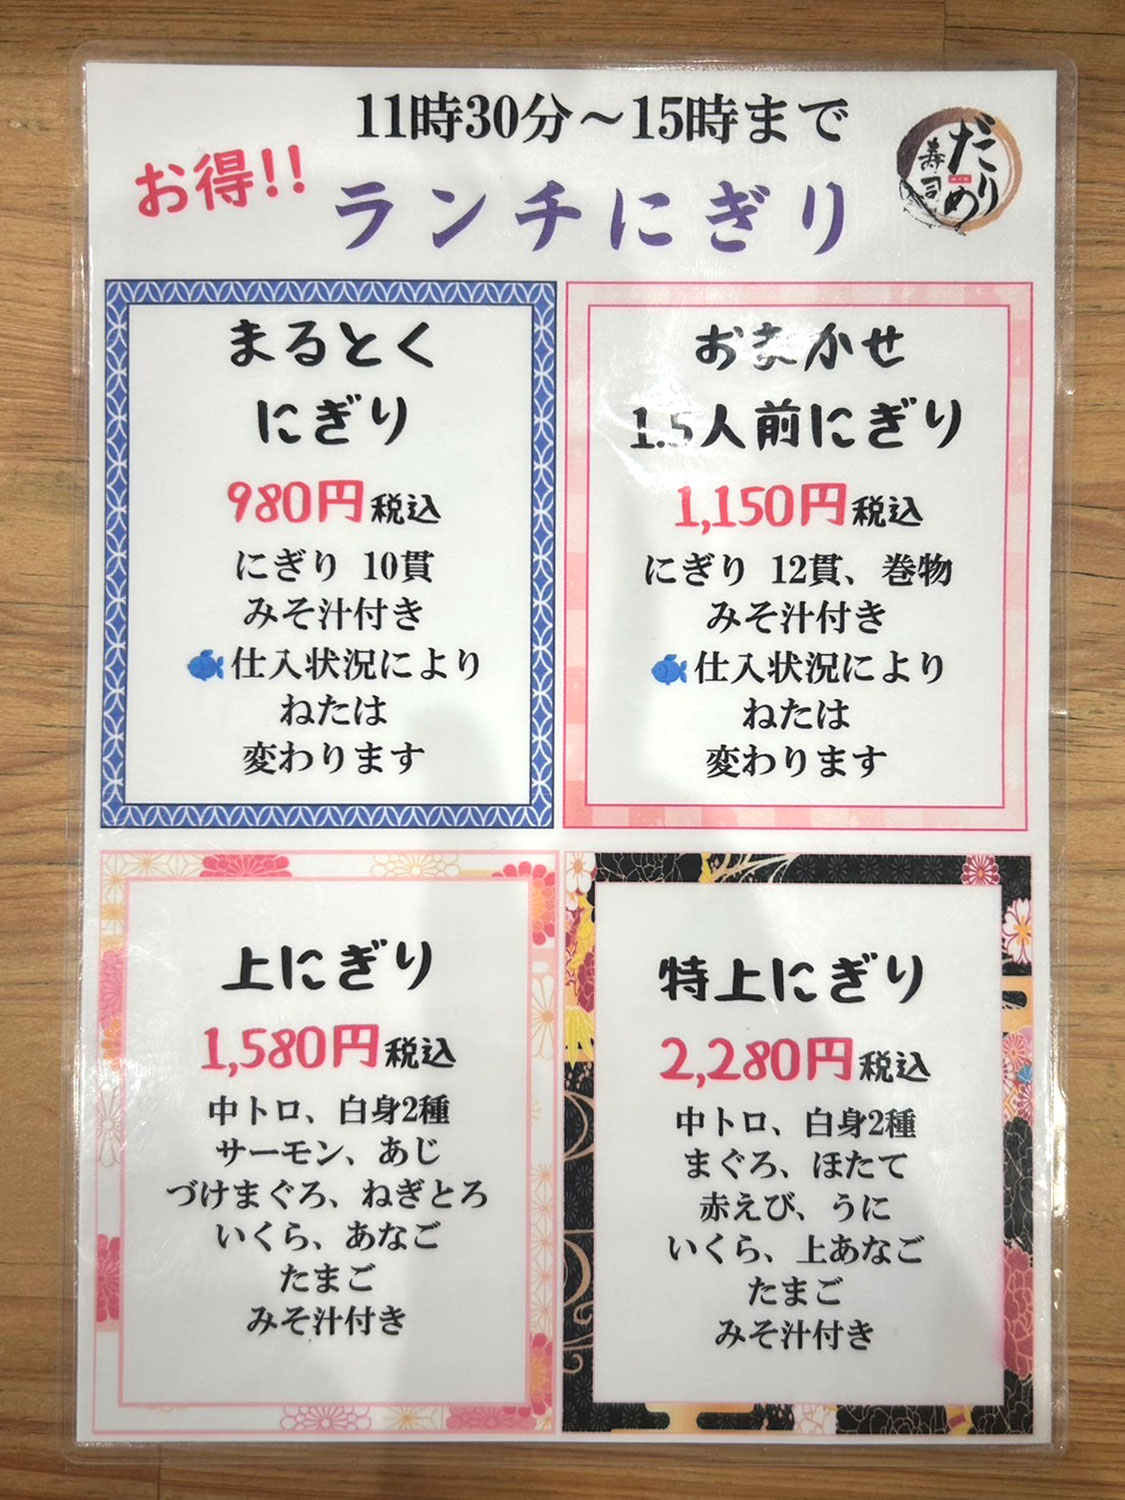 11時30分～15時まで
お得!!
ランチにぎり
だりめ
寿司
まるとく
にぎり
980円税込
にぎり 10貫
みそ汁付き
仕入状況により
ねたは
変わります
おまかせ
1.5人前にぎり
1,150円税込
にぎり 12貫、巻物
みそ汁付き
仕入状況により
ねたは
変わります
上にぎり
1,580円税込
中トロ、白身2種
サーモン、あじ
づけまぐろ、ねぎとろ
いくら、あなご
たまご
みそ汁付き
特上にぎり
2,280円税込
中トロ、白身2種
まぐろ、ほたて
赤えび、うに
いくら、上あなご
たまご
みそ汁付き